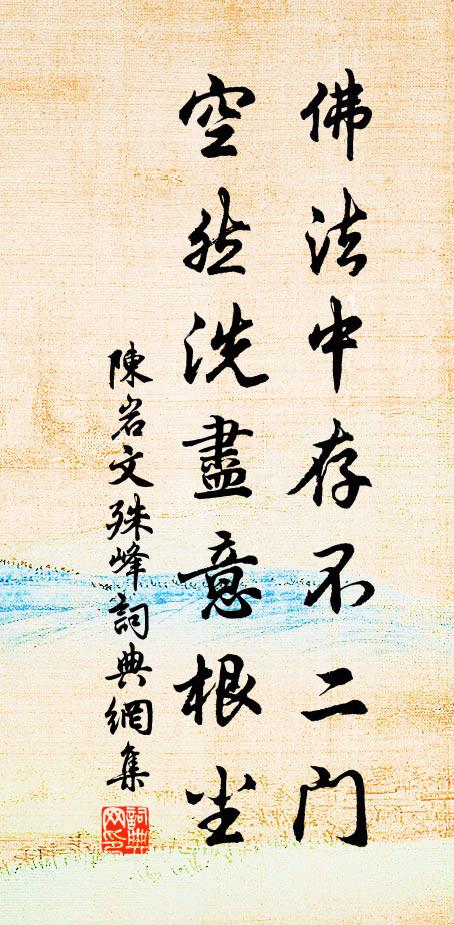 佛法中存不二门
空然洗盡意根尘
陳岩文殊峰詞典網集
詞典网印